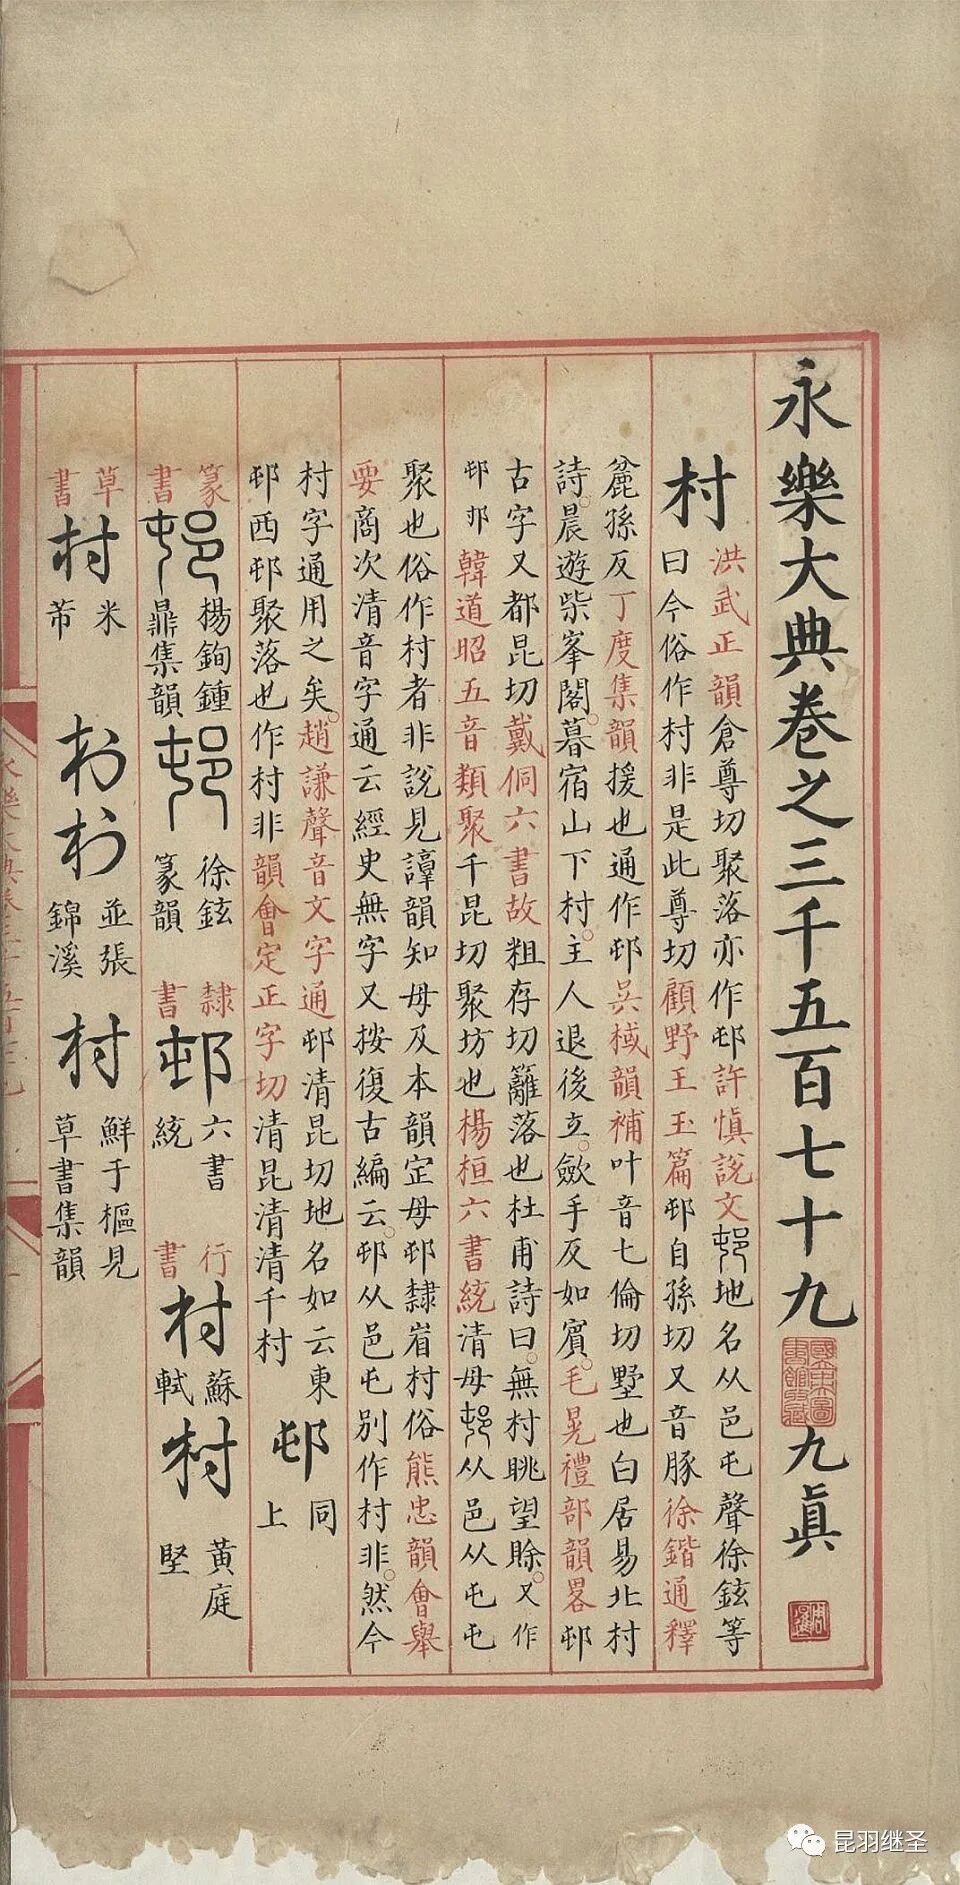 永樂大典卷之三千五百七十九 九眞
村
洪武正韻倉尊切聚落亦作邨許慎說文邨地名从邑屯聲徐鉉等
曰今俗作村非是此尊切顧野王玉篇邨自孫切又音豚徐鍇通釋
麄孫反丁度集韻援也通作邨吳棫韻補叶音七倫切墅也白居易北村
詩。晨遊紫峯閣。暮宿山下村。主人退後立。歛手反如賓。毛晃禮部韻畧邨
古字又都昆切戴侗六書故粗存切籬落也杜甫詩曰。無村眺望賒。又作
邨 韓道昭五音類聚千昆切聚坊也楊桓六書統清母邨从邑从屯屯
聚也俗作村者非說見諄韻知母及本韻定母邨隸省村俗熊忠韻會舉
要商次清音字通云經史無字又按復古編云。邨从邑屯別作村非。然今
村字通用之矣。趙謙聲音文字通邨清昆切地名如云東
邨西邨聚落也作村非韻會定正字切清昆清清千村
邨 同上
篆書 邨 楊鉤鍾鼎集韻 邨 徐鉉篆韻 隸書 邨 六書統 行書 村 蘇軾 村 黃庭堅
草書 村 米芾 村 村 並張錦溪 村 鮮于樞見草書集韻
昆羽继圣